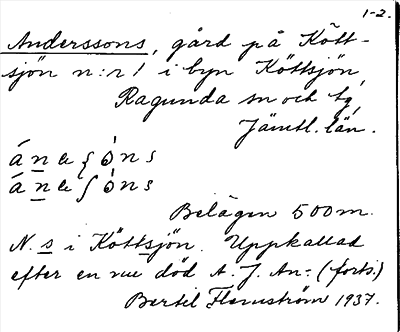 1-2.
Anderssons, gård på Kött-
sjön n:r 1 i byn Köttsjön,
Ragunda sn och tg,
Jämtl. län.
Belägen 500 m.
N. s i Köttsjön. Uppkallad
efter en nu död A. J. An= (forts.)
Bertil Flemström 1937.